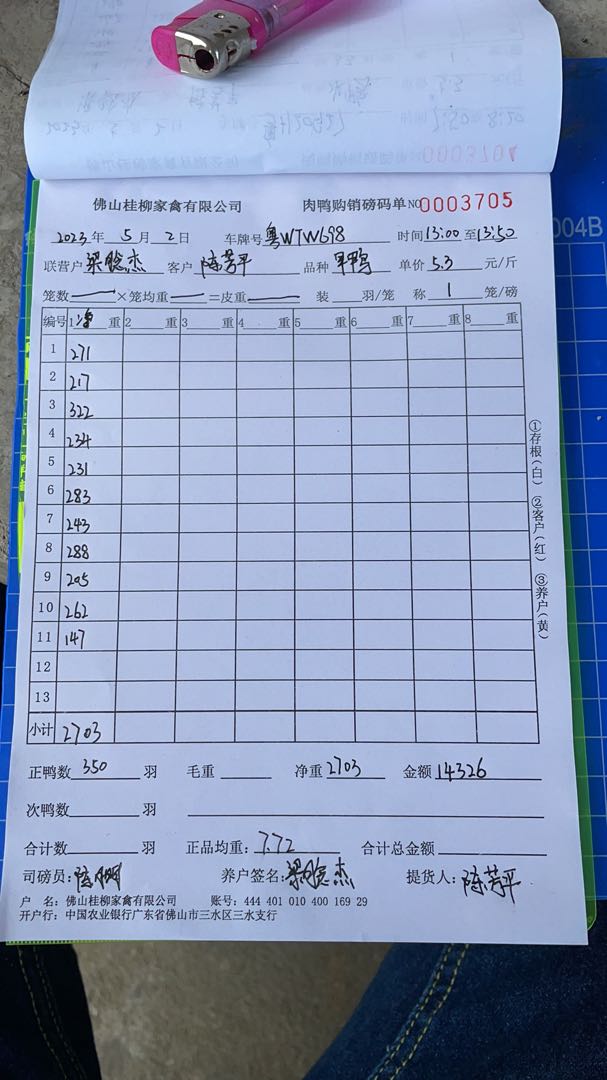 佛山桂柳家禽有限公司 肉鸭购销磅码单 NO 0003705
2023年 5月 2日 车牌号 粤WTW698 时间 13:00 至 13:50
联营户 梁聪杰 客户 陈芳平 品种 单价 5.3 元/斤
笼数 ×笼均重 =皮重 装 羽/笼 称 1 笼/磅
编号 1 净 重 2 重 3 重 4 重 5 重 6 重 7 重 8 重
1 271
2 217
3 322
4 234
5 231
6 283
7 243
8 288
9 205
10 262
11 147
12
13
小计 2703
正鸭数 350 羽 毛重 净重 2703 金额 14326
次鸭数 羽
合计数 羽 正品均重: 7.72 合计总金额
司磅员: 养户签名: 梁聪杰 提货人: 陈芳平
户 名: 佛山桂柳家禽有限公司 账号: 444 401 010 400 169 29
开户行: 中国农业银行广东省佛山市三水区三水支行
①存根(白) ②客户(红) ③养户(黄)
0003704
004B